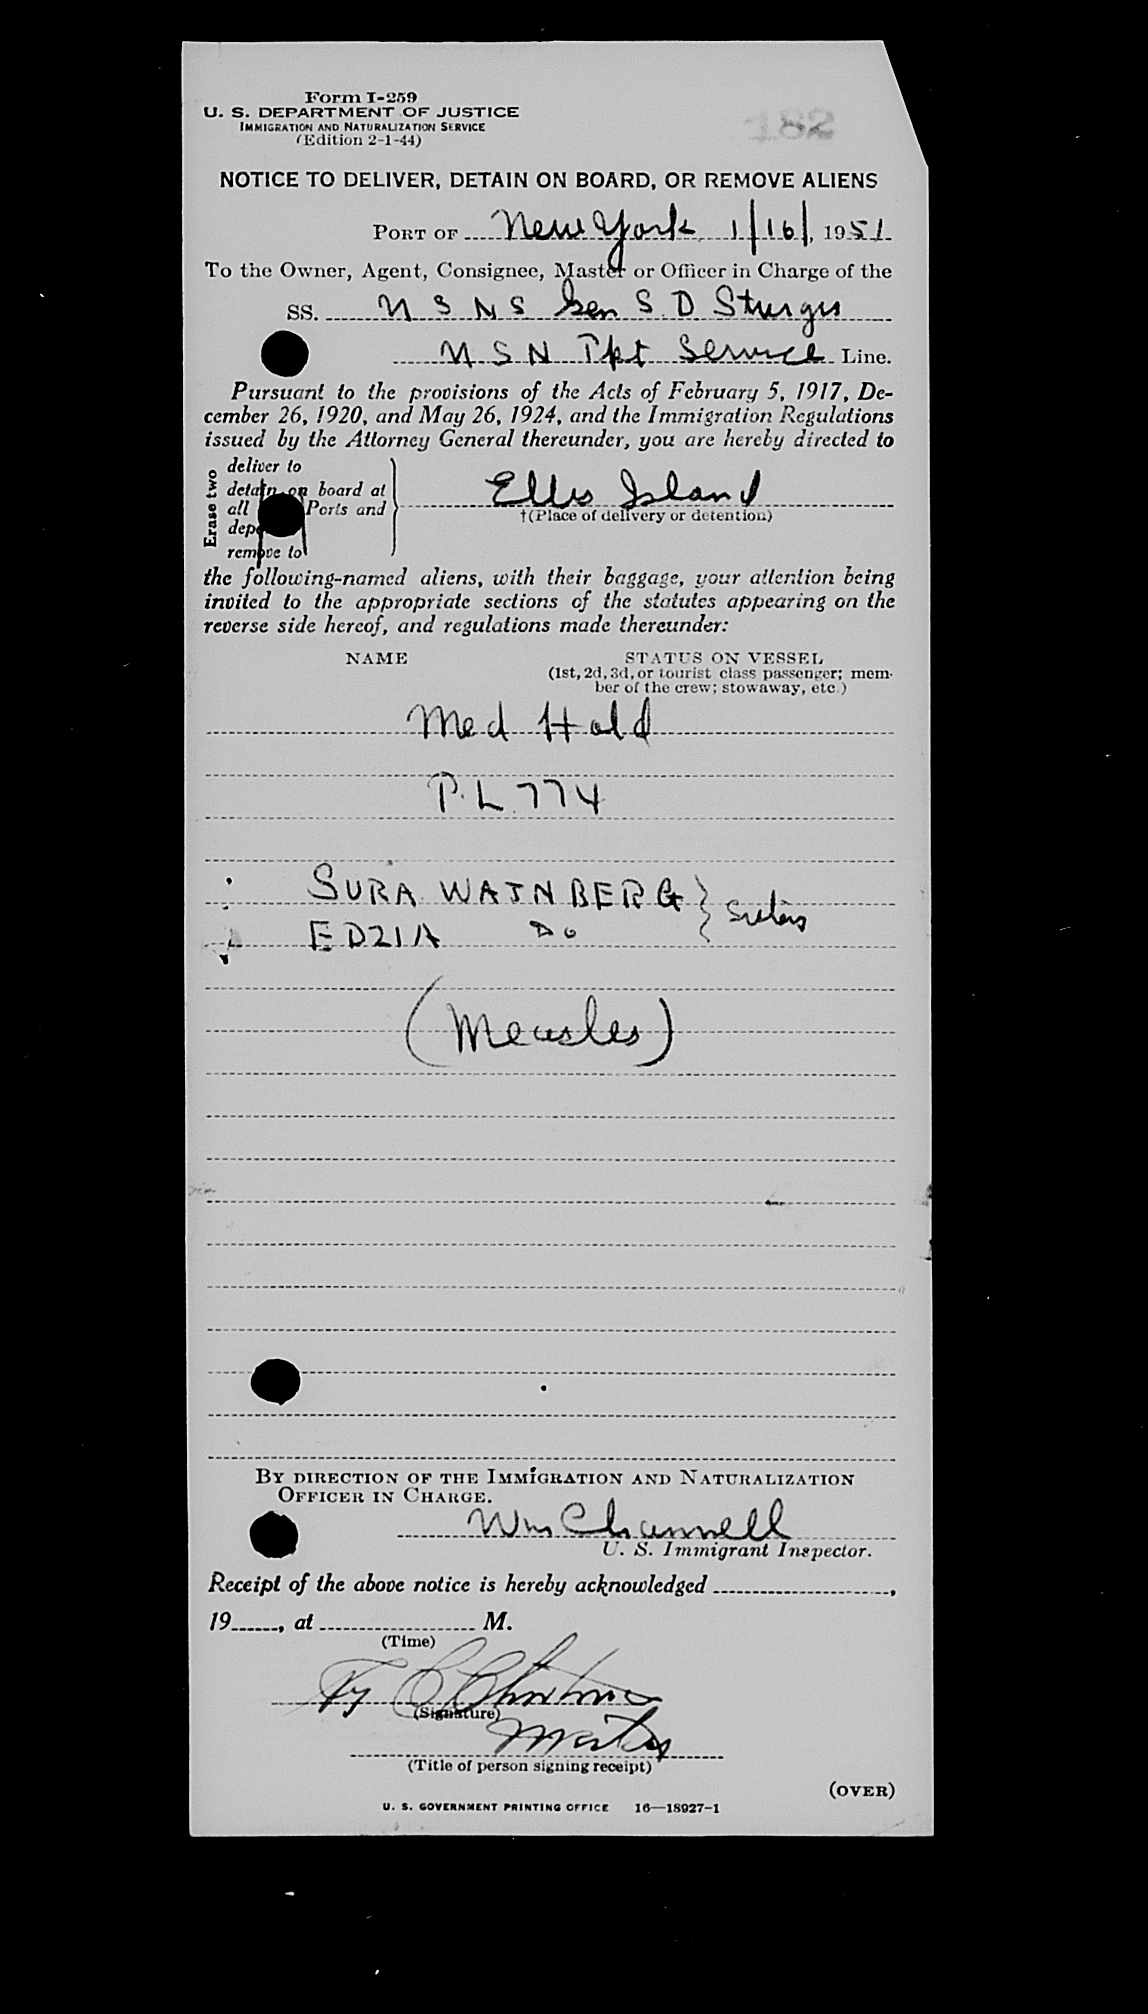 Form I-259
U. S. DEPARTMENT OF JUSTICE
IMMIGRATION AND NATURALIZATION SERVICE
(Edition 2-1-44)
182
NOTICE TO DELIVER, DETAIN ON BOARD, OR REMOVE ALIENS
PORT OF New York, 1/16/, 1951
To the Owner, Agent, Consignee, Master or Officer in Charge of the
SS. U S N S Gen S. D Sturgis
U S N Tpt Service Line.
Pursuant to the provisions of the Acts of February 5, 1917, De-
cember 26, 1920, and May 26, 1924, and the Immigration Regulations
issued by the Attorney General thereunder, you are hereby directed to
Erase two
deliver to
detain on board at
all Ports and
remove to
Ellis Island
†(Place of delivery or detention)
the following-named aliens, with their baggage, your attention being
invited to the appropriate sections of the statutes appearing on the
reverse side hereof, and regulations made thereunder:
NAME STATUS ON VESSEL
(1st, 2d, 3d, or tourist class passenger; mem-
ber of the crew; stowaway, etc.)
Med Hold
P.L. 774
SURA WAJNBERG } Sisters
EDZIA Do
(Measles)
BY DIRECTION OF THE IMMIGRATION AND NATURALIZATION
OFFICER IN CHARGE.
Wm Channell
U. S. Immigrant Inspector.
Receipt of the above notice is hereby acknowledged ,
19 , at M.
(Time)
(Signature)
Master
(Title of person signing receipt)
(OVER)
U. S. GOVERNMENT PRINTING OFFICE 16—18927-1